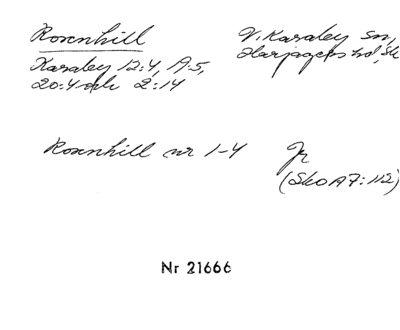 Rosenhill
V. Karaby sn,
Harjagers hd, Sk
Karaby 12:4, A:5,
20:4 och 2:14
Rosenhill nr 1-4
Jr
(Sko A7:112)
Nr 21666